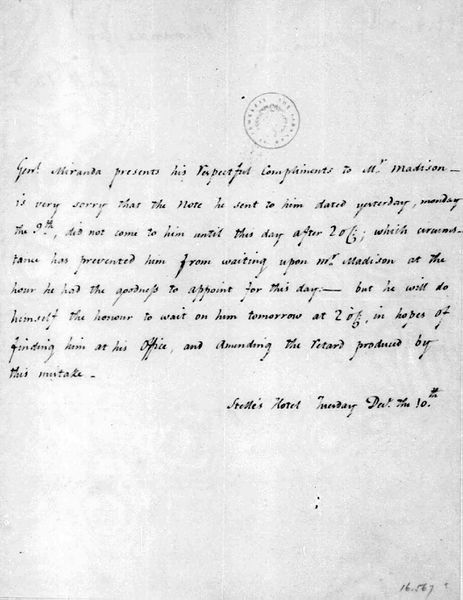 Genl. Miranda presents his respectful Compliments to Mr. Madison —
is very sorry that the Note he sent to him dated yesterday, monday
the 9th, did not come to him until this day after 2 oC; which circums-
tance has prevented him from waiting upon Mr. Madison at the
hour he had the goodness to appoint for this day — but he will do
himself the honour to wait on him tomorrow at 2 oC, in hopes of
finding him at his Office, and Amending the Retard produced by
this mistake —
Stelle's Hotel Tuesday Decr. the 10th
16.567